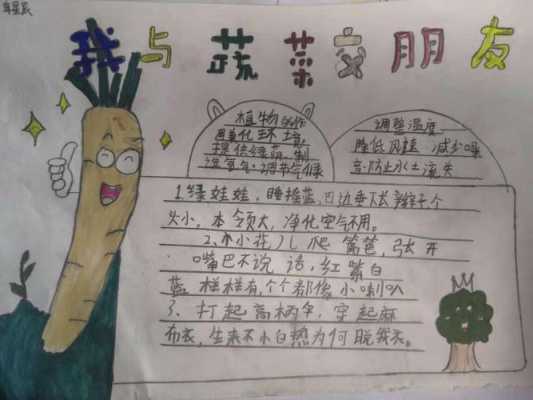 我与蔬菜交朋友
植物的作
用美化环境,
提供绿荫,制
造氧气,调节气候
调整温度
降低风速 减少噪
音,防止水土流失
1.绿娃娃,睡摇蓝,四边垂下长辫子个
头小,本领大,净化空气不用。
2.小花儿爬篱笆,张开
嘴巴不说话,红紫白
蓝样样有,个个都像小喇叭
3、打起高柄伞,穿起麻
布衣,生来不
为何脱我衣。